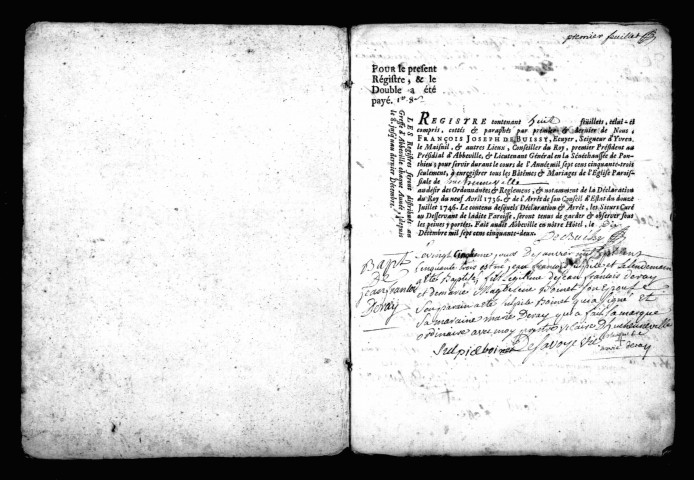 premier feuillet
POUR le present
Régistre, & le
Double a été
payé.
LES Registres seront distribués au
Greffe d'Abbeville chaque Année, depuis
le 8. jusqu'aux dernier Décembre.
REGISTRE contenant huit feuillets, celui-ci
compris, cottés & paraphés par premier & dernier de Nous,
FRANÇOIS JOSEPH DE BUISSY, Ecuyer, Seigneur d'Yvren,
le Maisnil, & autres Lieux, Conseiller du Roy, premier Président au
Présidial d'Abbeville, & Lieutenant Général en la Sénéchaussée de Pon-
thieu; pour servir durant le cours de l'Année mil sept cens cinquante-trois
seulement, à enregistrer tous les Bâtêmes & Mariages de l'Eglise Parois-
siale de
au desir des Ordonnances & Reglement, & notamment de la Déclaration
du Roy du neuf Avril 1736. & de l'Arrêt de son Conseil d'Estat du douze
Juillet 1746. Le contenu desquels Déclaration & Arrêt, les Sieurs Curé
ou Desservant de ladite Paroisse, seront tenus de garder & observer sous
les peines y portées. Fait audit Abbeville en notre Hôtel, le dix
Décembre mil sept cens cinquante-deux.
De Buissy
Bapt
de
jean francois
Devay
Le vingt jour de janvier mil sept cent
cinquante trois est né jean francois et le lendemain
a été baptisé fils légitime de jean francois devay
et de marie Magdeleine Boinet son epouse
Son parain a été sulpice Boinet qui a signé et
sa maraine marie Devay qui a fait sa marque
ordinaire avec moy vicaire
Sulpice boinet De Savoye
marque de
marie devay